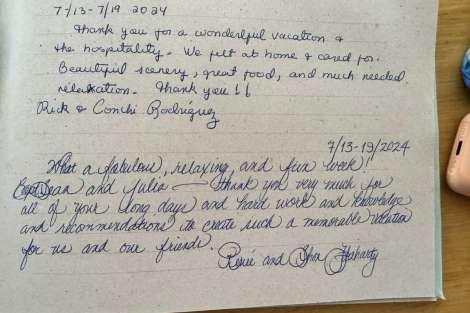 7/13-7/19 2024
Thank you for a wonderful vacation &
the hospitality. We felt at home & cared for.
Beautiful scenery, great food, and much needed
relaxation. Thank you!!
Rick & Conchi Rodríguez
7/13-19/2024
What a fabulous, relaxing, and fun week!
Capt Sean and Julia — thank you very much for
all of your long days and hard work and knowledge
and recommendations to create such a memorable vacation
for us and our friends.
Renée and